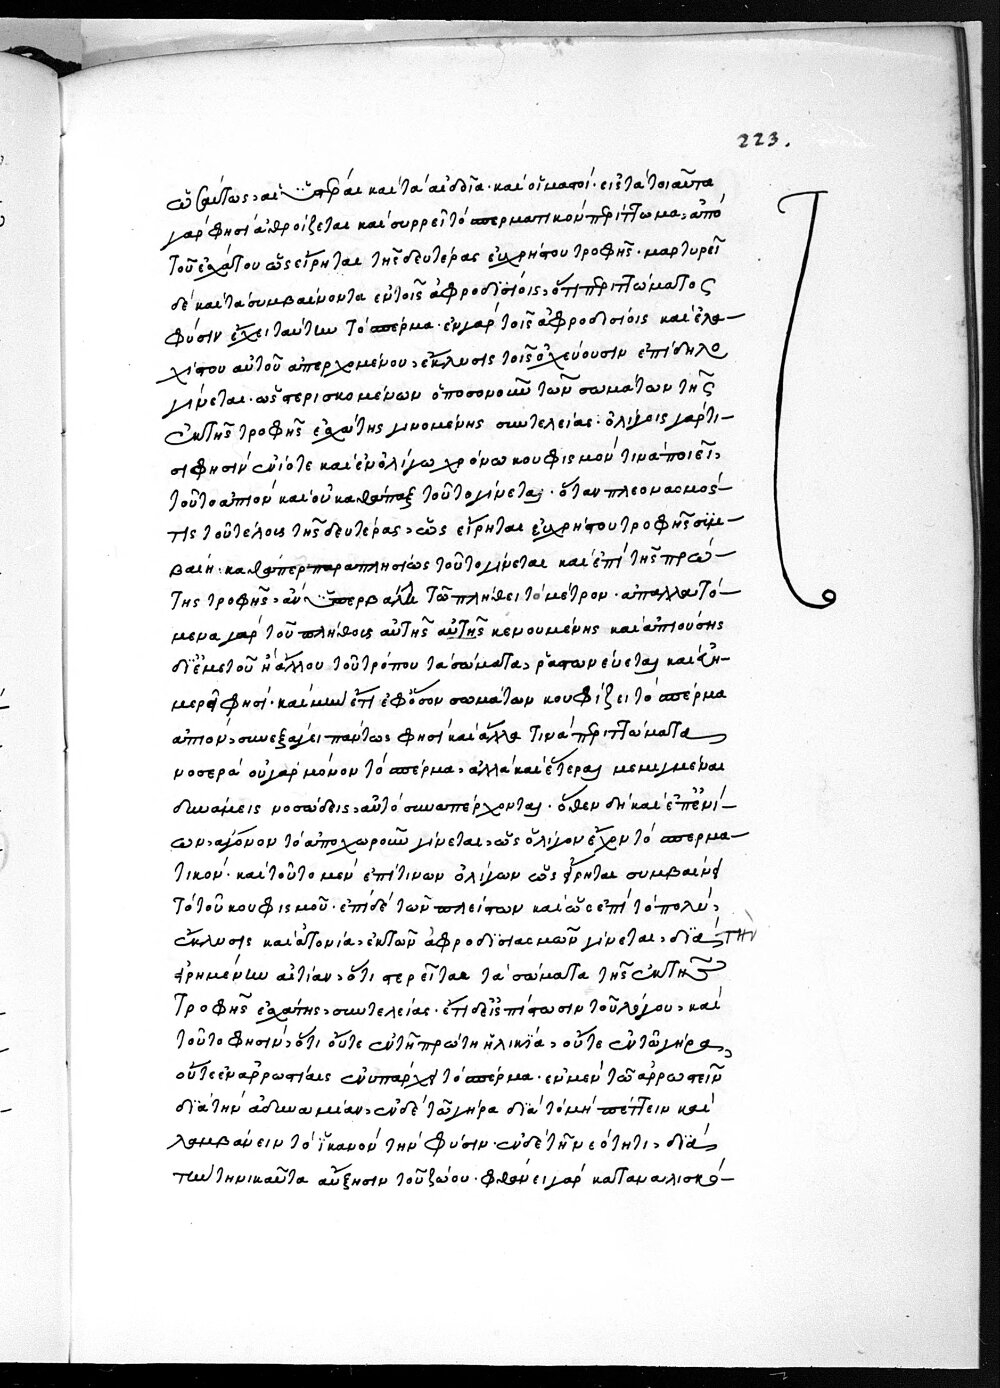 223.
ὡσαύτως, αἱ ὑστέραι καὶ τὰ αἰδοῖα· καὶ οἱ μαστοί· εἰς τὰ τοιαῦτα
γάρ φησι ἀθροίζεται καὶ συρρεῖ τὸ σπερματικὸν περίττωμα, ἀπὸ
τοῦ ἐσχάτου ὡς εἴρηται τῆς δευτέρας εὐχρήστου τροφῆς· μαρτυρεῖ
δὲ καὶ τὰ συμβαίνοντα ἐν τοῖς ἀφροδισίοις, ὅτι περιττώματος
φύσιν ἔχει ταύτην τὸ σπέρμα· ἐν γὰρ τοῖς ἀφροδισίοις καὶ ἐλα-
χίστου αὐτοῦ ἀπερχομένου, ἔκλυσις τοῖς ὀχεύουσιν ἐπίδηλο
γίνεται· ὡς στερισκομένων ὁποσονοῦν τῶν σωμάτων τῆς
ἐκ τῆς τροφῆς ἐσχάτης γινομένης συντελείας· ὀλίγοις γάρ τι-
σι φησὶν ἐνίοτε καὶ ἐν ὀλίγω χρόνω κουφισμόν τινα ποιεῖ,
τοῦτο ἀπιὸν καὶ οὐ καθάπαξ τοῦτο γίνεται· ὅταν πλεονασμός-
τις τοῦ τέλους τῆς δευτέρας, ὡς εἴρηται εὐχρήστου τροφῆς συμ-
βαίη· καθάπερ παραπλησίως τοῦτο γίνεται καὶ ἐπὶ τῆς πρώ-
της τροφῆς, ἂν ὑπερβάλη τῶ πλήθει τὸ μέτρον· ἀπαλλαττό-
μενα γὰρ τοῦ πλήθους αὐτῆς αὐτῆς κενουμένης καὶ ἀπιούσης
δι' ἐμετοῦ ἢ ἄλλου του τρόπου τὰ σώματα, ῥάστων εύεται καὶ εὐη-
μερεῖ φησι· καὶ μὴν ἔτι ἐφ' ὅσον σωμάτων κουφίζει τὸ σπέρμα
ἀπιὸν, συνεξάγει πάντως φησὶ καὶ ἄλλα τινὰ περιττώματα
νοσερά οὐ γὰρ μόνον τὸ σπέρμα, ἀλλὰ καὶ ἕτεραι μεμιγμέναι
δυνάμεις νοσώδεις, αὐτὸ συναπέρχονται· ὅθεν δὴ καὶ ἐπ' ἐνί-
ων, ἄγονον τὸ ἀποχωροῦν γίνεται, ὡς ὀλίγον ἔχον τὸ σπερμα-
τικόν· καὶ τοῦτο μὲν ἐπί τινων ὀλίγων ὡς εἴρηται συμβαίνει
τὸ τοῦ κουφισμοῦ· ἐπὶ δὲ τῶν πλείστων καὶ ὡς ἐπὶ τὸ πολύ,
ἔκλυσις καὶ ἀτονία, ἐκ τῶν ἀφροδισιασμῶν γίνεται, διὰ τὴν
εἰρημένην αἰτίαν, ὅτι στερεῖται τὰ σώματα τῆς ἐκ τῆς
τροφῆς ἐσχάτης, συντελείας· ἔτι δεῖ εἰς πίστωσιν τοῦ λόγου, καὶ
τοῦτο φησὶν, ὅτι οὔτε ἐν τῆ πρώτη ἡλικία, οὔτε ἐν τῶ γήρα,
οὔτε ἐν ἀρρωστίαις ἐνυπάρχει τὸ σπέρμα· ἐν μὲν τῶ ἀρρωστεῖν
διὰ τὴν ἀδυναμίαν, ἐν δὲ τῶ γήρα διὰ τὸ μὴ πέττειν καὶ
λαμβάνειν τὸ ἱκανὸν τὴν φύσιν· ἐν δὲ τῆ νεότητι, διὰ
τὴν τηνικαῦτα αὔξησιν τοῦ ζώου· φθάνει γὰρ καταναλισκό-